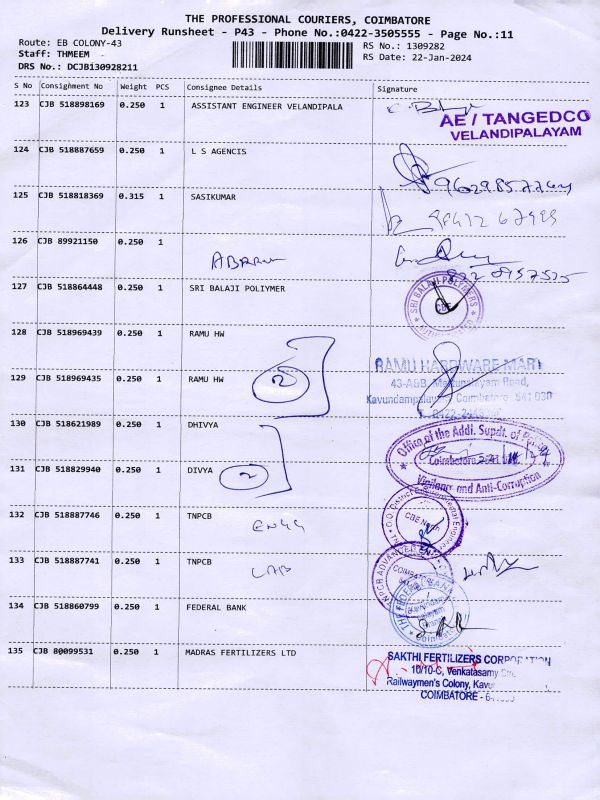 THE PROFESSIONAL COURIERS, COIMBATORE
Delivery Runsheet - P43 - Phone No.:0422-3505555 - Page No.:11
Route: EB COLONY-43
RS No.: 1309282
Staff: THMEEM
RS Date: 22-Jan-2024
DRS No.: DCJB130928211
S No Consignment No Weight PCS Consignee Details Signature
123 CJB 518898169 0.250 1 ASSISTANT ENGINEER VELANDIPALA
AE / TANGEDCO
VELANDIPALAYAM
124 CJB 518887659 0.250 1 L S AGENCIS
125 CJB 518818369 0.315 1 SASIKUMAR
126 CJB 89921150 0.250 1
127 CJB 518864448 0.250 1 SRI BALAJI POLIYMER
SRI BALAJI POLYMERS
CBE
128 CJB 518969439 0.250 1 RAMU HW
RAMU HARDWARE MART
129 CJB 518969435 0.250 1 RAMU HW 2
43-A&B, Mettupalayam Road,
Kavundampalayam Coimbatore. 641 030
130 CJB 518621989 0.250 1 DHIVYA
Office of the Addl. Supdt. of Police
Coimbatore
131 CJB 518829940 0.250 1 DIVYA 2
Vigilance and Anti-Corruption
132 CJB 518887746 0.250 1 TNPCB ENGG
CBE North
133 CJB 518887741 0.250 1 TNPCB LAB
TNPCB ADVANCED
134 CJB 518860799 0.250 1 FEDERAL BANK
THE FEDERAL BANK
135 CJB 80099531 0.250 1 MADRAS FERTILIZERS LTD
SAKTHI FERTILIZERS CORPORATION
10/10-C, Venkatasamy
Railwaymen's Colony,
COIMBATORE -